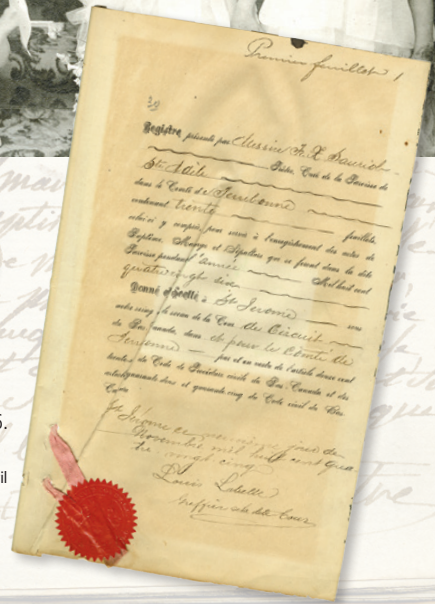 Premier feuillet 1
39
Registre présenté par Messire F. X. Sauriol
Prêtre, Curé de la Paroisse de
Ste Adèle
dans le Comté de Terrebonne
contenant trente feuillets,
celui-ci y compris, pour servir à l'enregistrement des actes de
Baptême, Mariage et Sépulture qui se feront dans la dite
Paroisse pendant l'année Mil huit cent
quatre vingt six
Donné et scellé à St Jérôme sous
notre seing, le sceau de la Cour de Circuit
du Bas Canada, dans et pour le Comté de
Terrebonne par et en vertu de l'article douze cent
du Code de Procédure civile du Bas Canada et des
articles quarante deux et quarante cinq du Code civil du Bas
Canada
St Jérôme ce jour de
Novembre mil huit cent qua
tre vingt cinq
Louis Labelle
Greffier de la dite Cour
5.
il